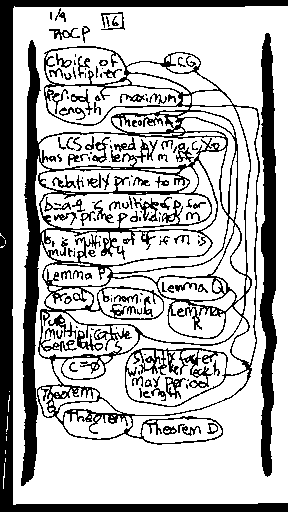 1/9
TAOCP
16
Choice of
multiplier
LCG
Period of
length
maximum
Theorem A
LCS defined by m, a, c, X0
has period length m iff
c relatively prime to m
b=a-1 is multiple of p, for
every prime p dividing m
b, is multiple of 4 if m is
multiple of 4
Lemma P
Lemma Q
Proof
binomial
formula
Lemma
R
Pure
multiplicative
Generators
c=0
Slightly faster
will never reach
max period
length
Theorem
B
Theorem
C
Theorem D